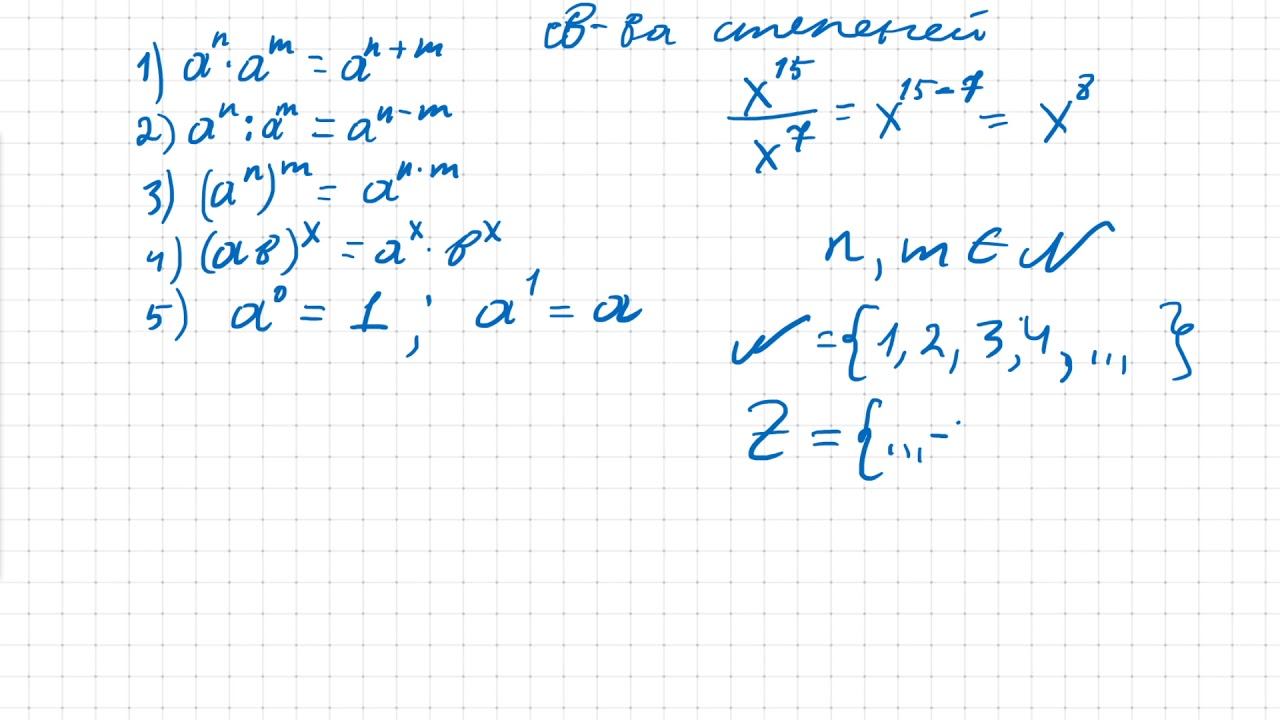 св-ва степеней
1) aⁿ · aᵐ = aⁿ⁺ᵐ
2) aⁿ : aᵐ = aⁿ⁻ᵐ
3) (aⁿ)ᵐ = aⁿ·ᵐ
4) (aв)ˣ = aˣ · вˣ
5) a⁰ = 1 ; a¹ = a
x¹⁵/x⁷ = x¹⁵⁻⁷ = x⁸
n, m ∈ N
N = {1, 2, 3, 4, ... }
Z = {...-